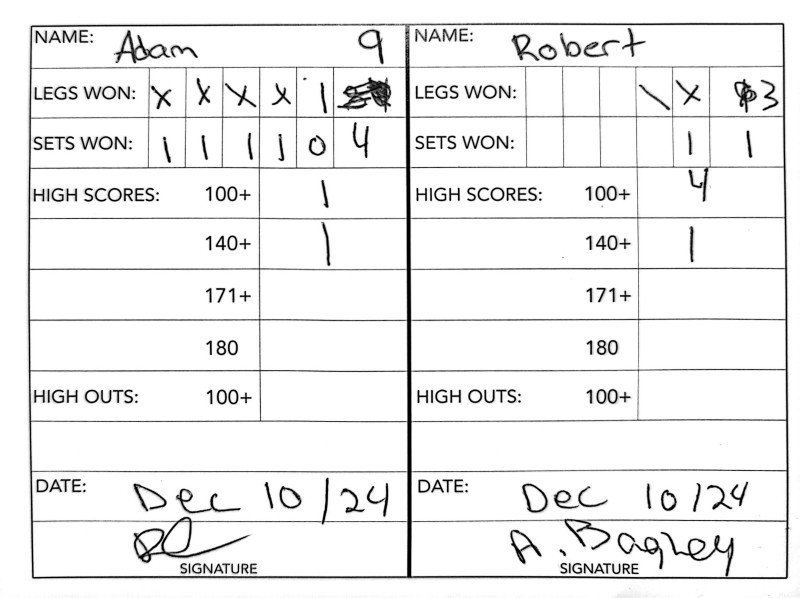 NAME: Adam 9
LEGS WON: X X X X 1
SETS WON: 1 1 1 1 0 4
HIGH SCORES: 100+ 1
140+ 1
171+
180
HIGH OUTS: 100+
DATE: Dec 10/24
SIGNATURE
NAME: Robert
LEGS WON: \ X 3
SETS WON: 1 1
HIGH SCORES: 100+ 4
140+ 1
171+
180
HIGH OUTS: 100+
DATE: Dec 10/24
A. Bagney
SIGNATURE